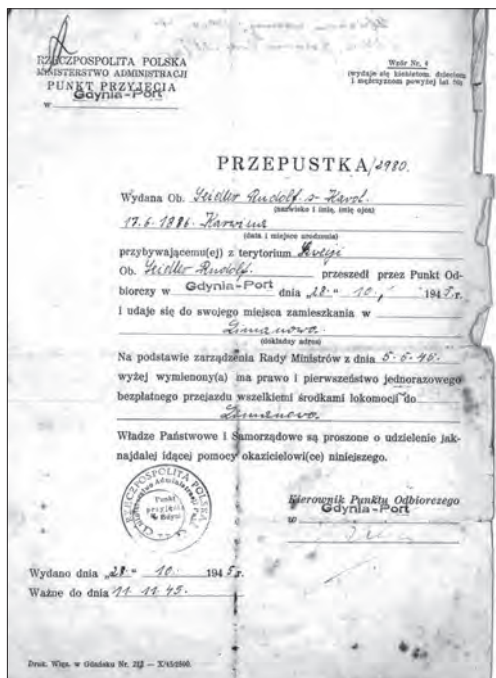 RZECZPOSPOLITA POLSKA
MINISTERSTWO ADMINISTRACJI
PUNKT PRZYJĘCIA
w Gdynia-Port
Wzór Nr. 4
(wydaje się kobietom, dzieciom
i mężczyznom powyżej lat 60)
PRZEPUSTKA/2980.
Wydana Ob. Seidler Rudolf s. Karol.
(nazwisko i imię, imię ojca)
17.6.1886. Karwina
(data i miejsce urodzenia)
przybywającemu(ej) z terytorium Szwecji
Ob. Seidler Rudolf. przeszedł przez Punkt Od-
biorczy w Gdynia-Port dnia „28." 10., 1945.r.
i udaje się do swojego miejsca zamieszkania w
Limanowa.
(dokładny adres)
Na podstawie zarządzenia Rady Ministrów z dnia 5.6.45.
wyżej wymieniony(a) ma prawo i pierwszeństwo jednorazowego
bezpłatnego przejazdu wszelkiemi środkami lokomocji do
Limanova.
Władze Państwowe i Samorządowe są proszone o udzielenie jak-
najdalej idącej pomocy okazicielowi(ce) niniejszego.
RZECZPOSPOLITA POLSKA
Ministerstwo Administracji
Punkt
przyjęcia
w Gdyni
Kierownik Punktu Odbiorczego
w Gdynia-Port
Wydano dnia „28." 10. 1945 r.
Ważne do dnia 11 11 45.
Druk. Więz. w Gdańsku Nr. 212 — X/45/2000.